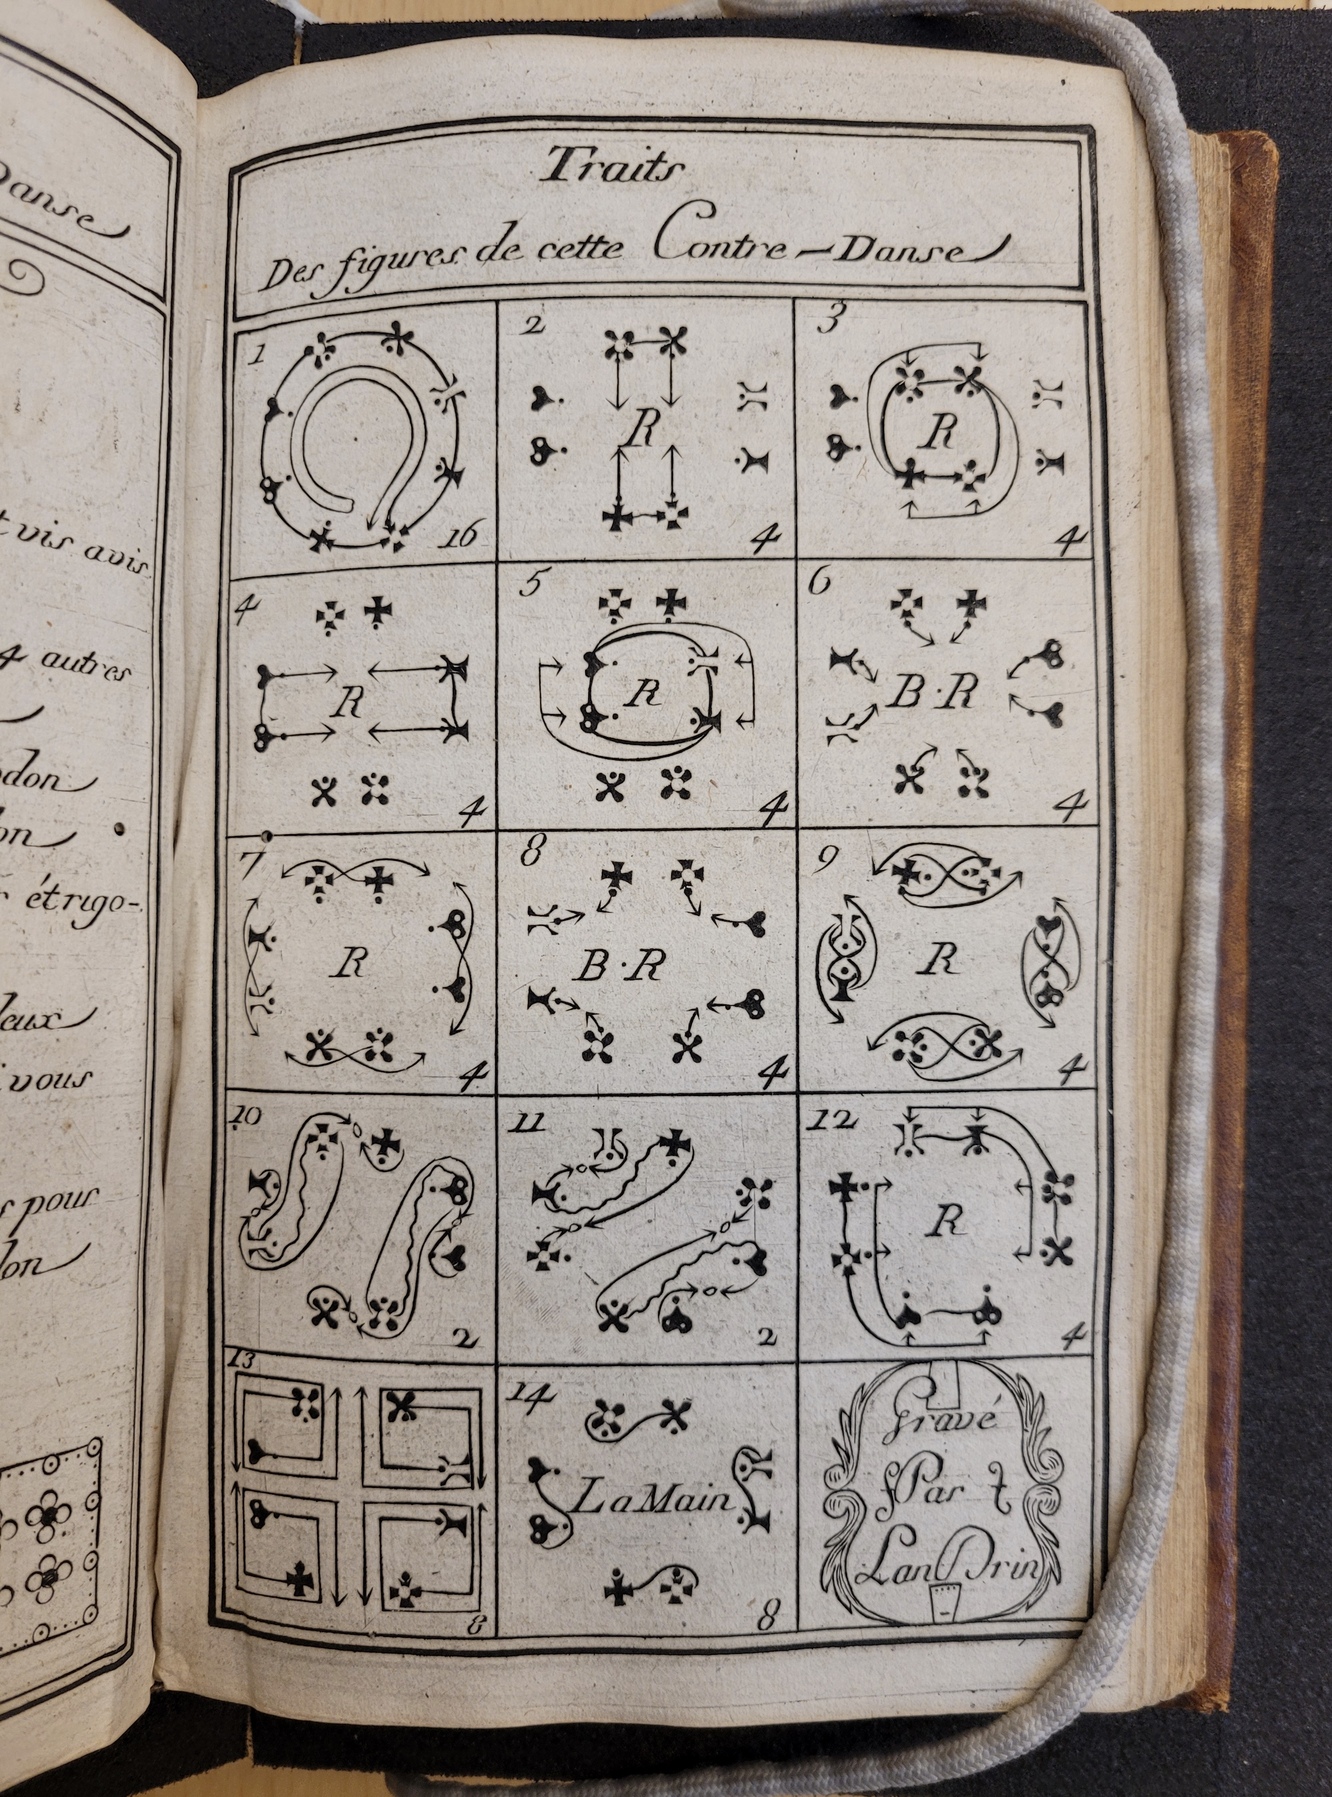 Danse
t vis avis
4 autres
étrigo-
vous
pour
Traits
Des figures de cette Contre-Danse
1
16
2
R
4
3
R
4
4
R
4
5
R
4
6
B·R
4
7
R
4
8
B·R
4
9
R
4
10
2
11
2
12
R
4
13
8
14
La Main
8
Gravé
Par
Landrin